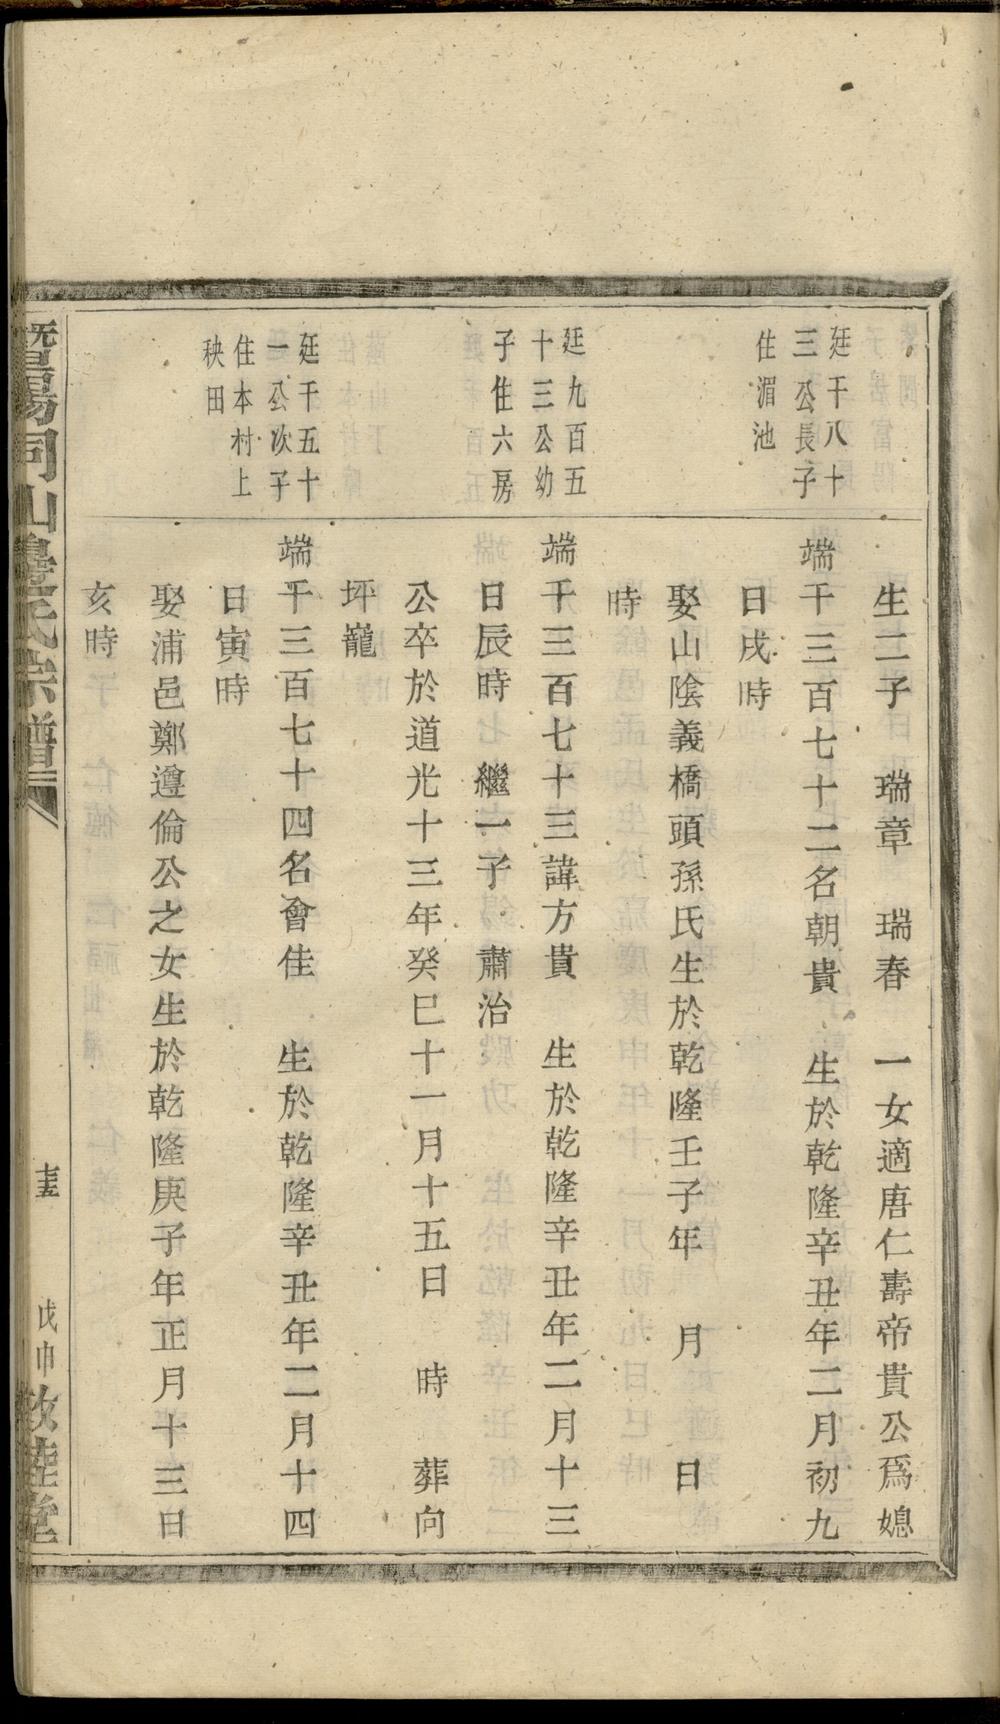 生二子　瑞章　瑞春　一女適唐仁壽帝貴公爲媳
廷千八十
三公長子
住湄池
端千三百七十二名朝貴　生於乾隆辛丑年二月初九
日戌時
娶山陰義橋頭孫氏生於乾隆壬子年　月　日
時
廷九百五
十三公幼
子住六房
端千三百七十三諱方貴　生於乾隆辛丑年二月十三
日辰時　繼一子　肅治
公卒於道光十三年癸巳十一月十五日　時　葬向
坪巃
廷千五十
一公次子
住本村上
秧田
端千三百七十四名會佳　生於乾隆辛丑年二月十四
日寅時
娶浦邑鄭遵倫公之女生於乾隆庚子年正月十三日
亥時
暨陽同山邊氏宗譜
戊申
敦睦堂